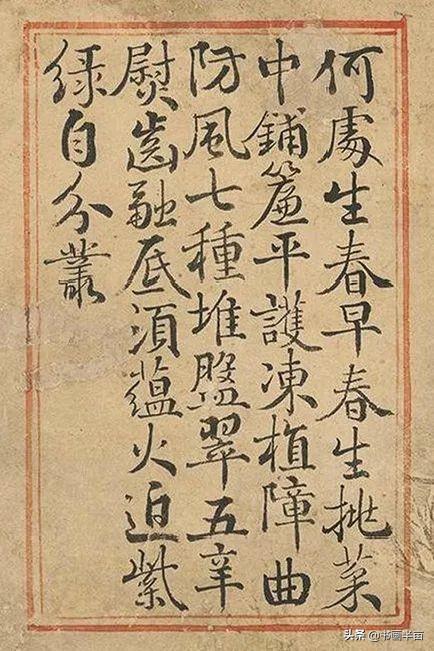 何處生春早春生挑菜
中鋪簾平護凍植障曲
防風七種堆盤翠五辛
熨齒融底須蘊火迫紫
綠自分叢
头条 @书画半亩